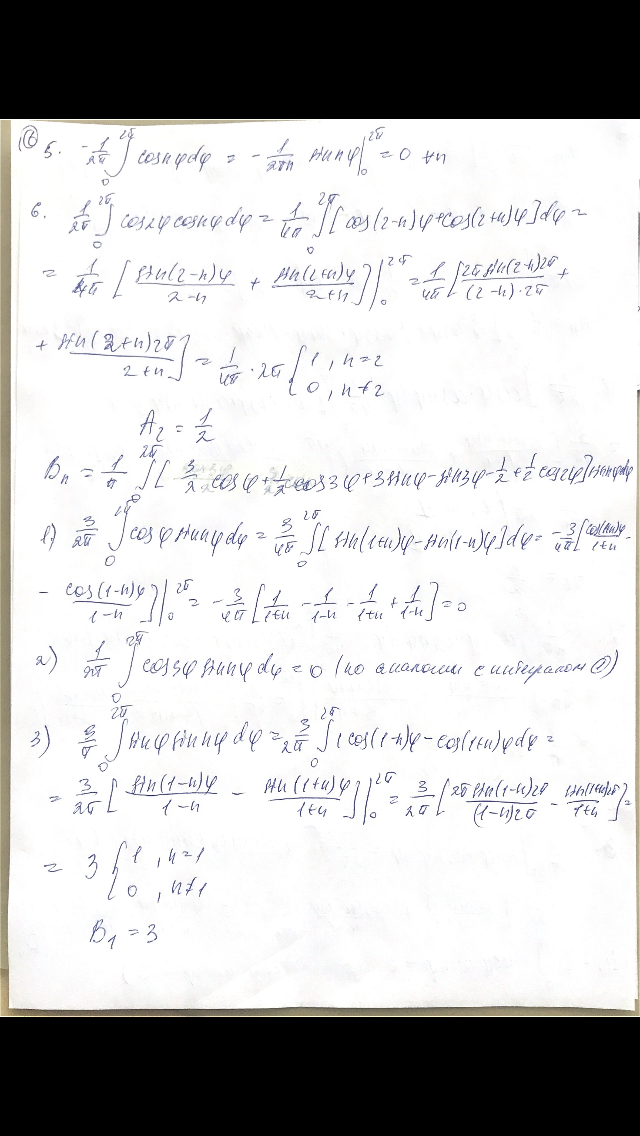 ⑥
5. -1/2π ∫₀^2π cos nφ dφ = -1/2πn sin nφ |₀^2π = 0 ∀n
6. 1/2π ∫₀^2π cos 2φ cos nφ dφ = 1/4π ∫₀^2π [cos(2-n)φ + cos(2+n)φ] dφ =
= 1/4π [sin(2-n)φ/2-n + sin(2+n)φ/2+n] |₀^2π = 1/4π [2π sin(2-n)2π/(2-n)·2π +
+ sin(2+n)2π/2+n] = 1/4π · 2π { 1, n=2
0, n≠2
A₂ = 1/2
Bₙ = 1/π ∫₀^2π [3/2 cos φ + 1/2 cos 3φ + 3 sin φ - sin 3φ - 1/2 + 1/2 cos 2φ] sin nφ dφ
1) 3/2π ∫₀^2π cos φ sin nφ dφ = 3/4π ∫₀^2π [sin(1+n)φ - sin(1-n)φ] dφ = -3/4π [cos(1+n)φ/1+n -
- cos(1-n)φ/1-n] |₀^2π = -3/4π [1/1+n - 1/1-n - 1/1+n + 1/1-n] = 0
2) 1/2π ∫₀^2π cos 3φ sin nφ dφ = 0 (по аналогии с интегралом ①)
3) 3/π ∫₀^2π sin φ sin nφ dφ = 3/2π ∫₀^2π [cos(1-n)φ - cos(1+n)φ dφ =
= 3/2π [sin(1-n)φ/1-n - sin(1+n)φ/1+n] |₀^2π = 3/2π [2π sin(1-n)2π/(1-n)2π - sin(1+n)2π/1+n] =
= 3 { 1, n=1
0, n≠1
B₁ = 3